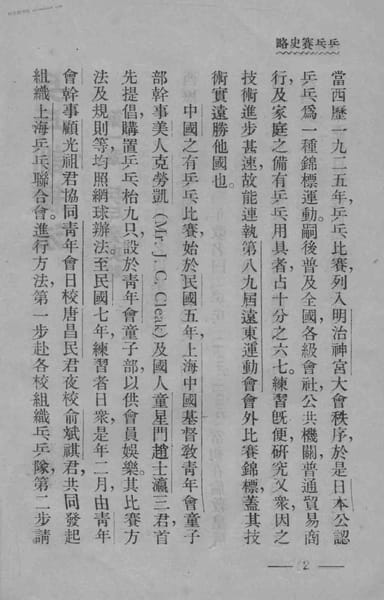 乒乓賽史略
當西歷一九二五年，乒乓比賽，列入明治神宮大會秩序，於是日本公認
乒乓爲一種錦標運動，嗣後普及全國各級會社，公共機關普通貿易商
行，及家庭之備有乒乓用具者，占十分之六七。練習既便，研究又衆，因之
技術進步甚速，故能連執第八九屆遠東運動會會外比賽錦標，蓋其技
術實遠勝他國也。
中國之有乒乓比賽，始於民國五年，上海中國基督敎靑年會童子
部幹事美人克勞凱(Mr. J. C. Cleak)及國人童星門趙士瀛三君首
先提倡，購置乒乓枱九只，設於靑年會童子部，以供會員娛樂。其比賽方
法及規則等，均照網球辦法，至民國七年，練習者日衆，是年二月，由靑年
會幹事顧光祖君，協同靑年會日校唐昌民君夜校俞斌祺君，共同發起
組織上海乒乓聯合會。進行方法，第一步赴各校組織乒乓隊，第二步請
2